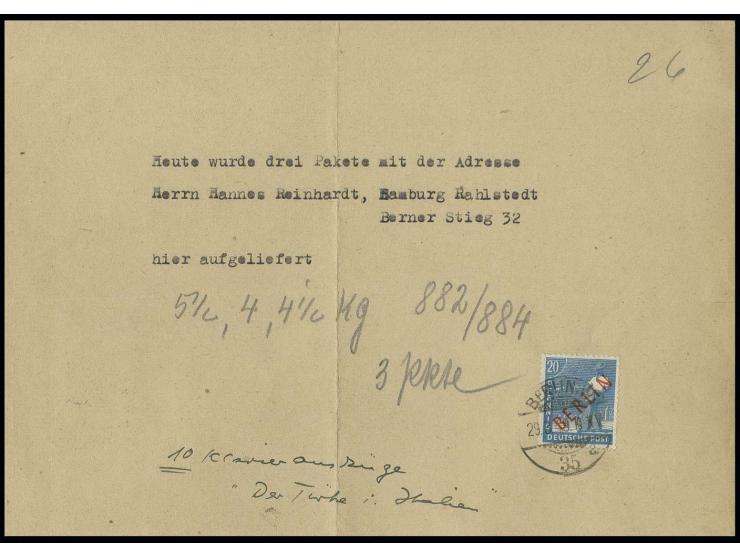 26
Heute wurde drei Pakete mit der Adresse
Herrn Hannes Reinhardt, Hamburg Rahlstedt
Berner Stieg 32
hier aufgeliefert
5½, 4, 4½ Kg 882/884
3 Pkte
20
BERLIN
BERLIN
29.
DEUTSCHE POST
35
a
10 Klavierauszüge
"Der Türke i. Italien"